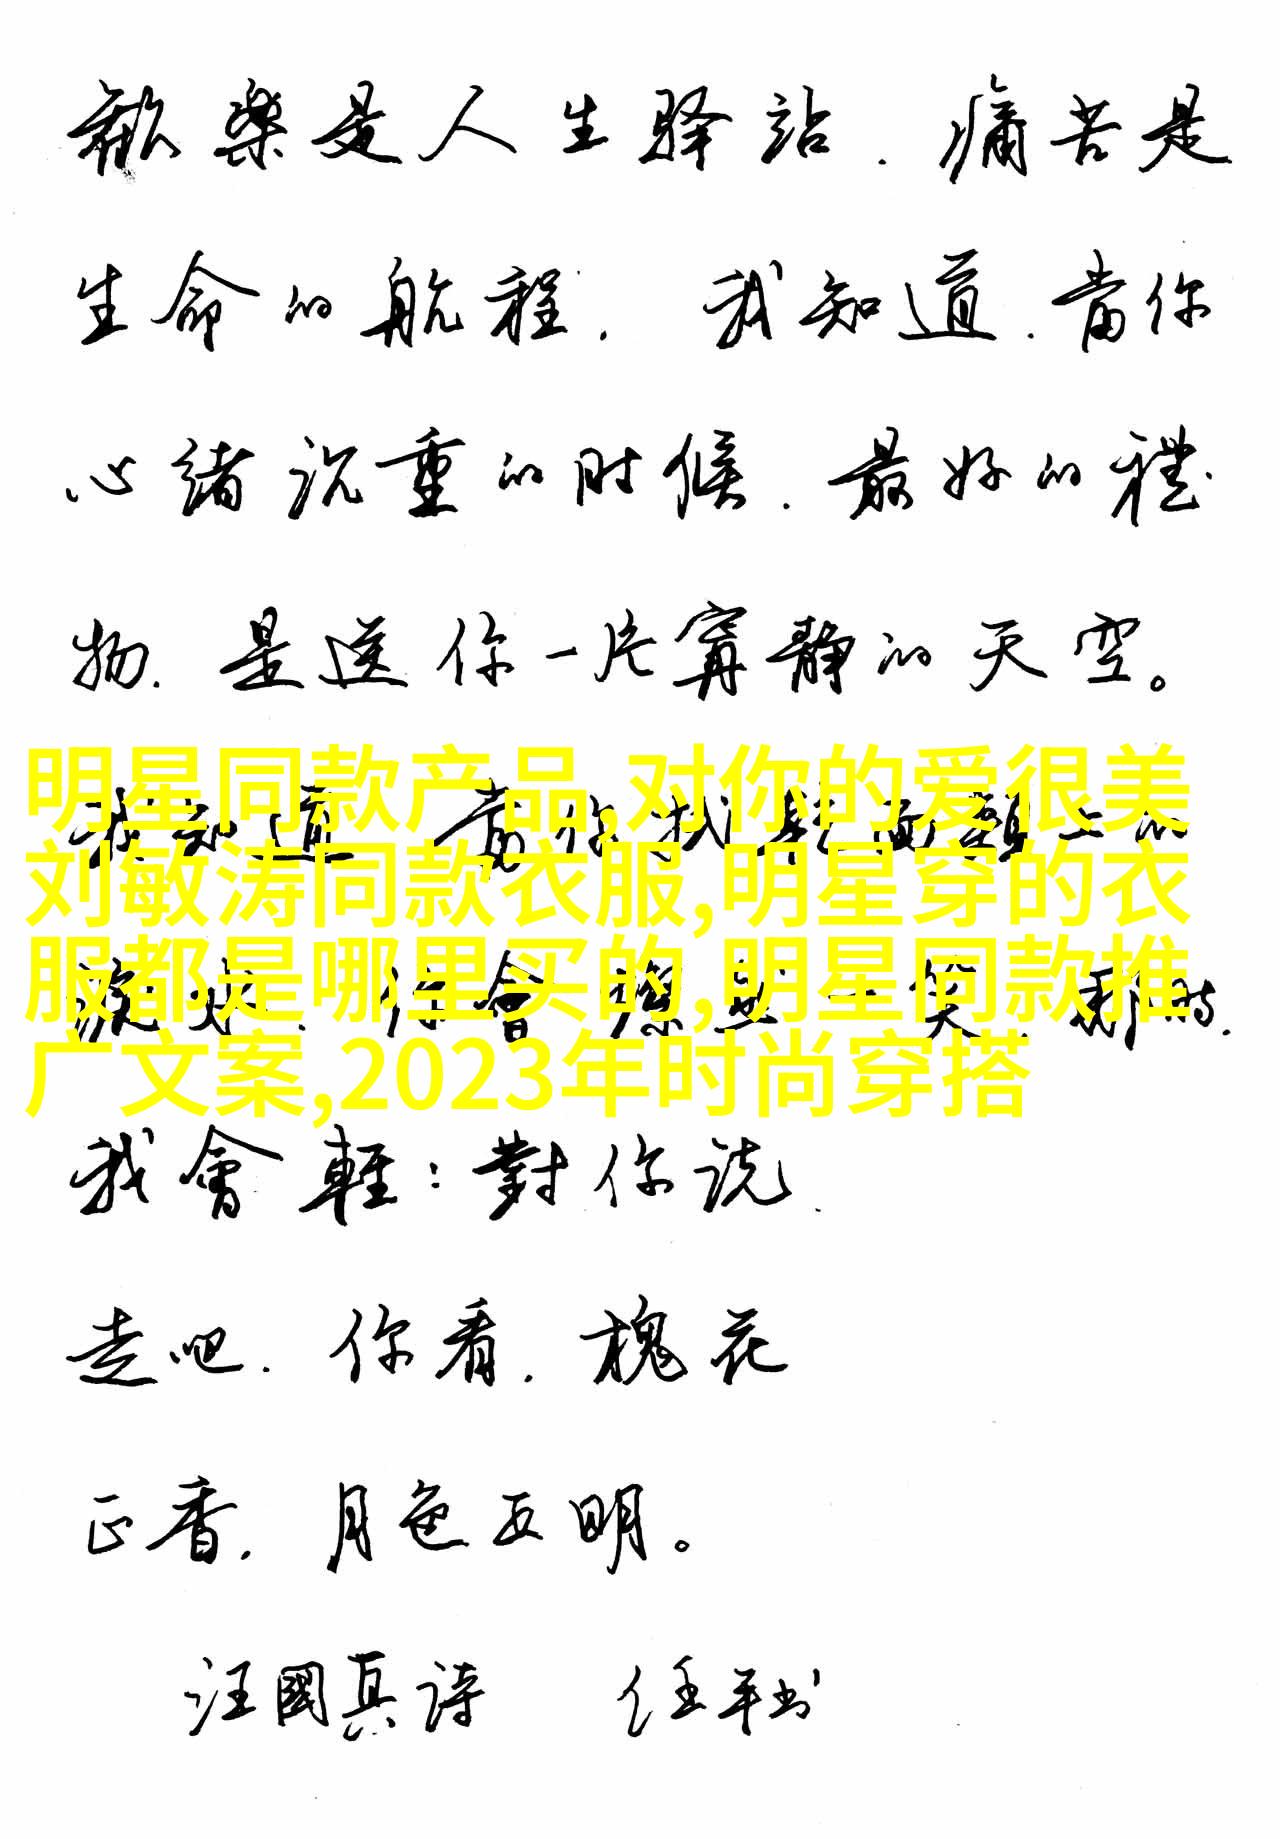 歡樂是人生驿站.痛苦是
生命的航程.我知道.當你
心緒沉重的时候.最好的禮
物.是送你一片寧静的天空。
明星同款产品,对你的爱很美
我知道 當你
刘敏涛同款衣服,明星穿的衣
服都是哪里买的,明星同款推
你會 一笑.那时.
广文案,2023年时尚穿搭
我會輕:對你说.
走吧.你看.槐花
正香.月色正明。
汪國真詩 任平书